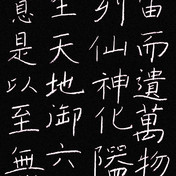 宙而遺萬物
列仙神化
天地御六
息是以至無